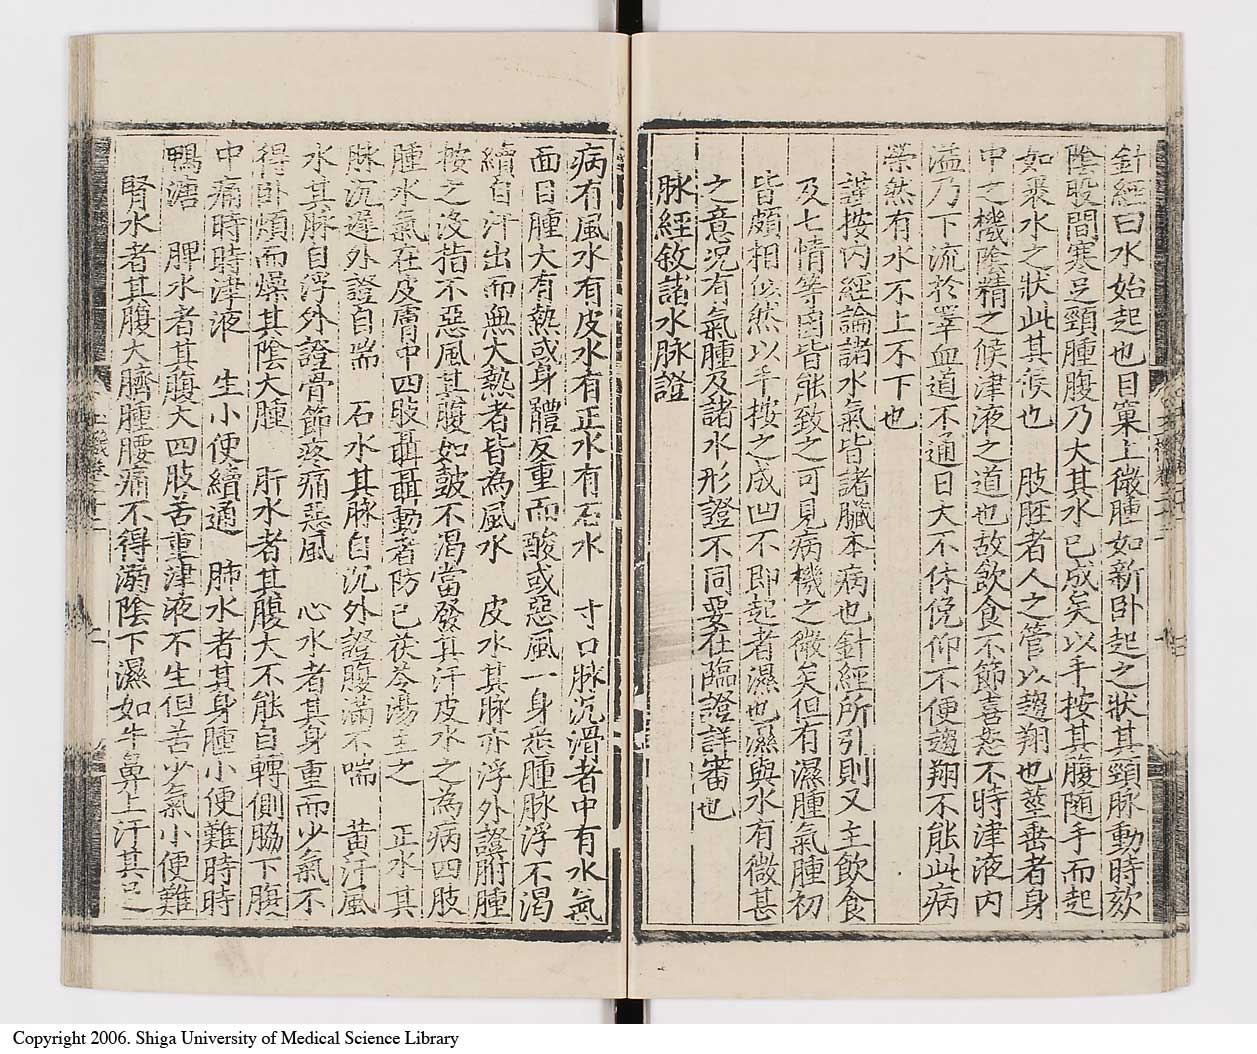 針經曰水始起也目窠上微腫如新卧起之狀其頸脉動時欬
陰股間寒足頸腫腹乃大其水已成矣以手按其腹随手而起
如裹水之狀此其候也　肢脛者人之管以趨翔也莖垂者身
中之機陰精之候津液之道也故飲食不節喜怒不時津液内
溢乃下流於睪血道不通日大不休俛仰不便趨翔不能此病
榮然有水不上不下也
謹按内經論諸水氣皆諸臓本病也針經所引則又主飲食
及七情等因皆能致之可見病機之微矣但有濕腫氣腫初
皆頗相似然以手按之成凹不即起者濕也濕與水有微甚
之意况有氣腫及諸水形證不同要在臨證詳審也
脉經敘諸水脉證
病有風水有皮水有正水有石水　寸口脉沉滑者中有水氣
面目腫大有熱或身體反重而酸或惡風一身悉腫脉浮不渴
續自汗出而無大熱者皆為風水　皮水其脉亦浮外證胕腫
按之没指不惡風其腹如皷不渴當發其汗皮水之為病四肢
腫水氣在皮膚中四肢聶聶動者防已茯苓湯主之　正水其
脉沉遲外證自喘　石水其脉自沉外證腹滿不喘　黄汗風
水其脉自浮外證骨節疼痛惡風　心水者其身重而少氣不
得卧煩而燥其陰大腫　肝水者其腹大不能自轉側脇下腹
中痛時時津液　生小便續通　肺水者其身腫小便難時時
鴨溏　脾水者其腹大四肢苦重津液不生但苦少氣小便難
腎水者其腹大臍腫腰痛不得溺陰下濕如牛鼻上汗其足
Copyright 2006. Shiga University of Medical Science Library